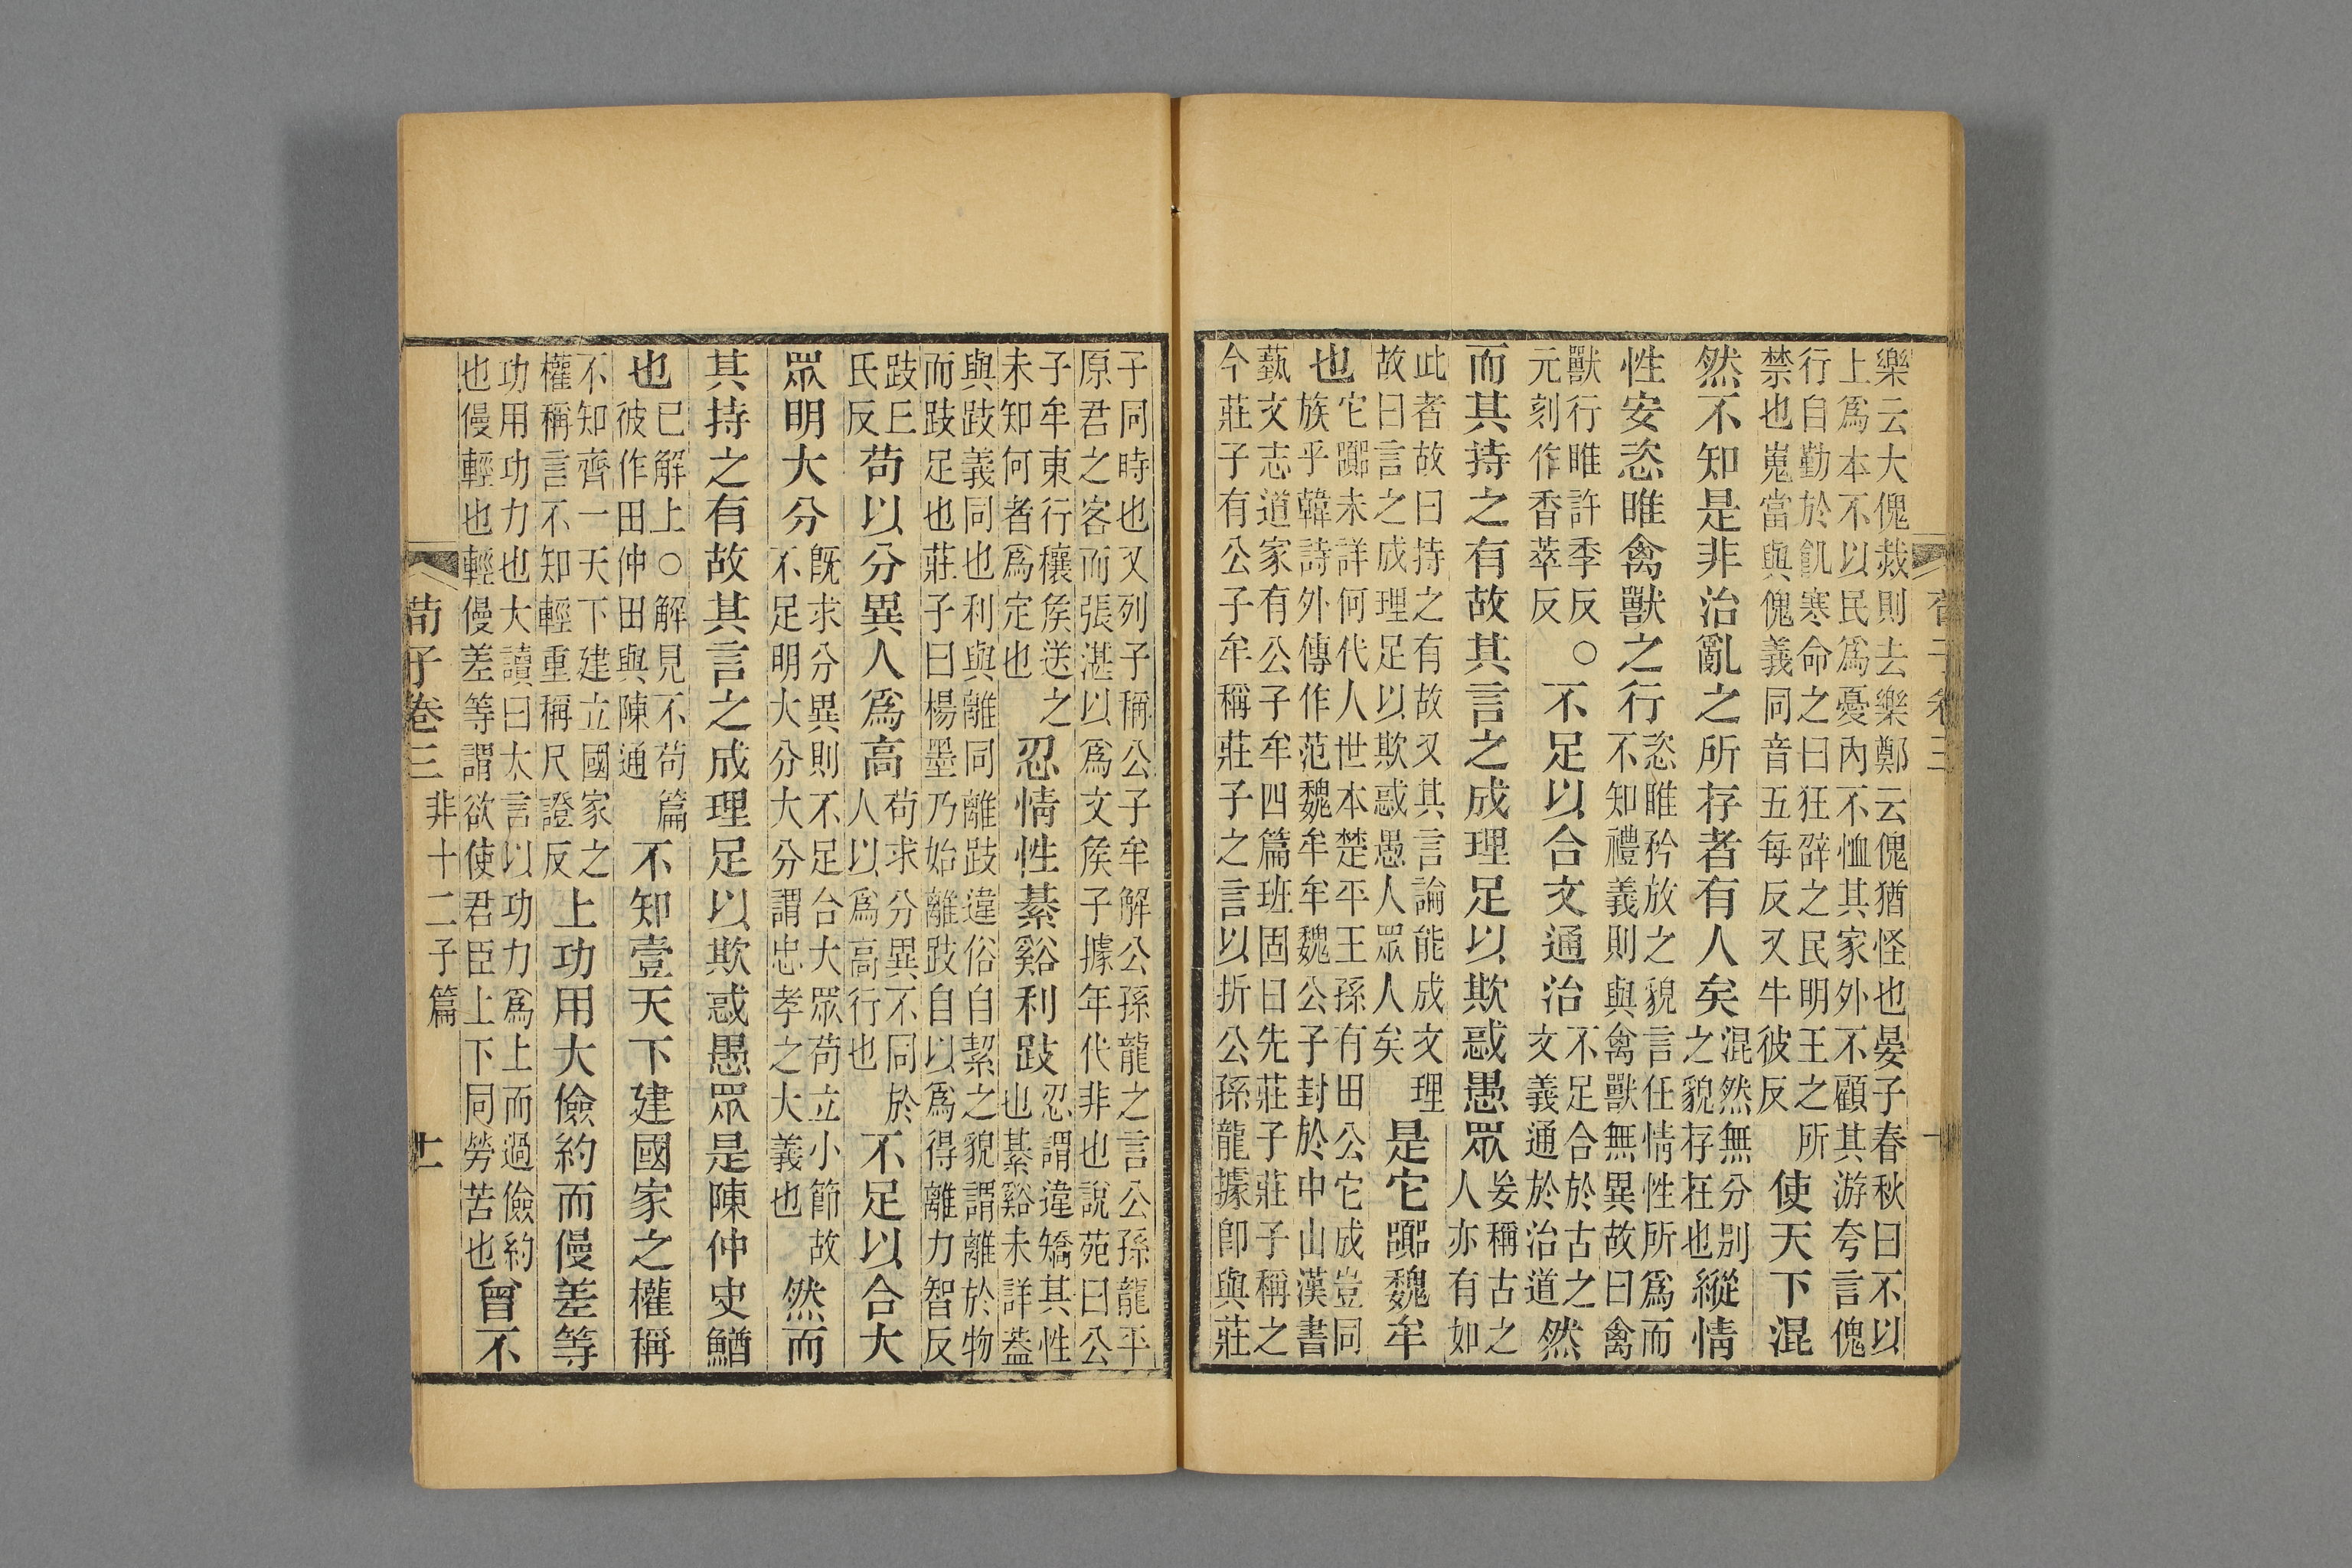 樂云大傀烖則去樂鄭云傀猶怪也晏子春秋曰不以
上爲本不以民爲憂內不恤其家外不顧其游夸言傀
行自勤於飢寒命之曰狂辟之民明王之所
禁也嵬當與傀義同音五每反又牛彼反
使天下混
然不知是非治亂之所存者有人矣
混然無分別
之貌存在也
縱情
性安恣睢禽獸之行
恣睢矜放之貌言任情性所爲而
不知禮義則與禽獸無異故曰禽
獸行睢許季反○
元刻作香萃反
不足以合文通治
不足合於古之
文義通於治道
然
而其持之有故其言之成理足以欺惑愚眾
妄稱古之
人亦有如
此者故曰持之有故又其言論能成文理
故曰言之成理足以欺惑愚人眾人矣
是它嚻魏牟
也
它嚻未詳何代人世本楚平王孫有田公它成豈同
族乎韓詩外傳作范魏牟牟魏公子封於中山漢書
藝文志道家有公子牟四篇班固曰先莊子莊子稱之
今莊子有公子牟稱莊子之言以折公孫龍據卽與莊
子同時也又列子稱公子牟解公孫龍之言公孫龍平
原君之客而張湛以爲文侯子據年代非也說苑曰公
子牟東行穰侯送之
未知何者爲定也
忍情性綦谿利跂
忍謂違矯其性
也綦谿未詳蓋
與跂義同也利與離同離跂違俗自絜之貌謂離於物
而跂足也莊子曰楊墨乃始離跂自以爲得離力智反
跂丘
氏反
苟以分異人爲高
苟求分異不同於
人以爲高行也
不足以合大
眾明大分
既求分異則不足合大眾苟立小節故
不足明大分大分謂忠孝之大義也
然而
其持之有故其言之成理足以欺惑愚眾是陳仲史鰌
也
已解上○解見不苟篇
彼作田仲田與陳通
不知壹天下建國家之權稱
不知齊一天下建立國家之
權稱言不知輕重稱尺證反
上功用大儉約而僈差等
功用功力也大讀曰太言以功力爲上而過儉約
也僈輕也輕僈差等謂欲使君臣上下同勞苦也
曾不
荀子卷三 非十二子篇 十一